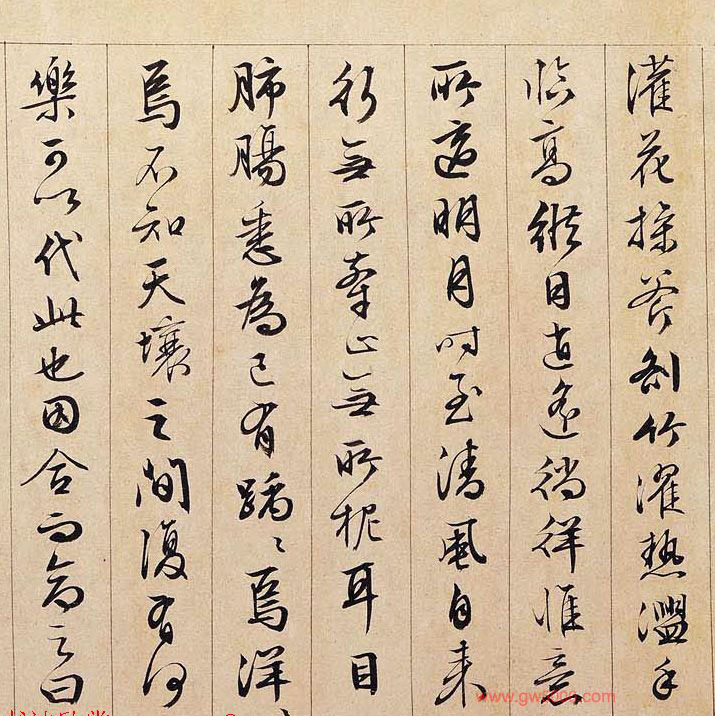 灌花操斧剖竹濯熱盥手
臨高縱目逍遙徜徉惟意
所適明月時至清風自來
行無所牽止無所柅耳目
肺腸悉為己有踽〻焉洋〻
焉不知天壤之間復有何
樂可以代此也因合而命之曰